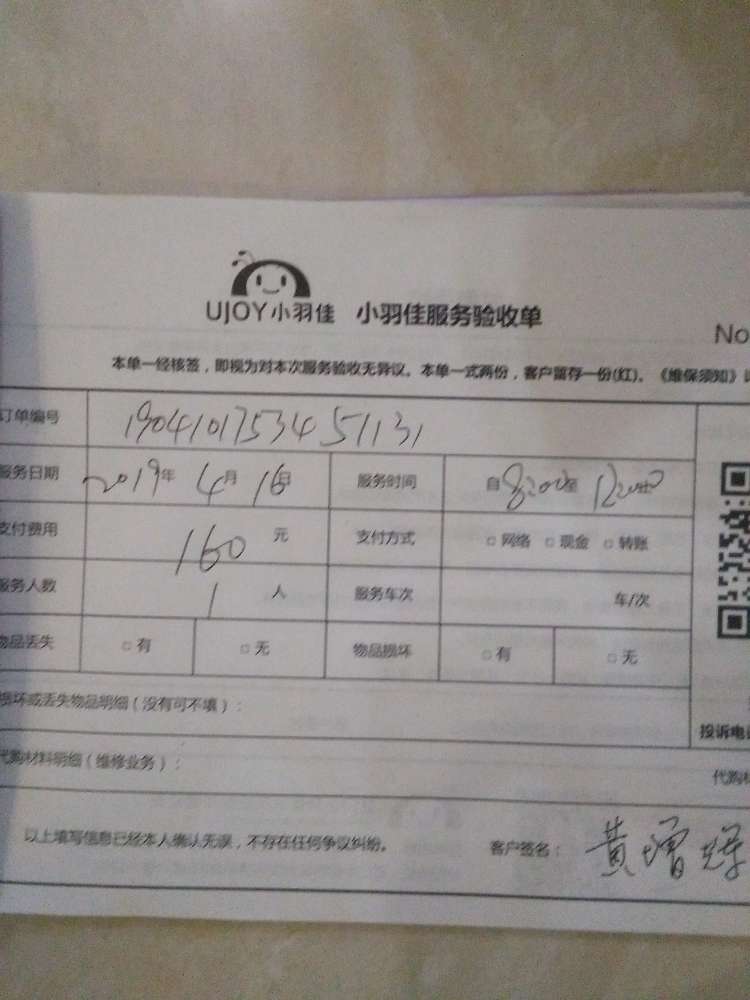 UJOY小羽佳 小羽佳服务验收单
No
本单一经核签，即视为对本次服务验收无异议。本单一式两份，客户留存一份(红)。《维保须知》
订单编号 1904101753451131
服务日期 2019年 4月 16日 服务时间 自 8:00至 12:00止
支付费用 160 元 支付方式 □ 网络 □ 现金 □ 转账
服务人数 1 人 服务车次 车/次
物品丢失 □ 有 □ 无 物品损坏 □ 有 □ 无
损坏或丢失物品明细（没有可不填）：
投诉电
代购材料明细（维修业务）：
代购
以上填写信息已经本人确认无误，不存在任何争议纠纷。 客户签名： 黄增